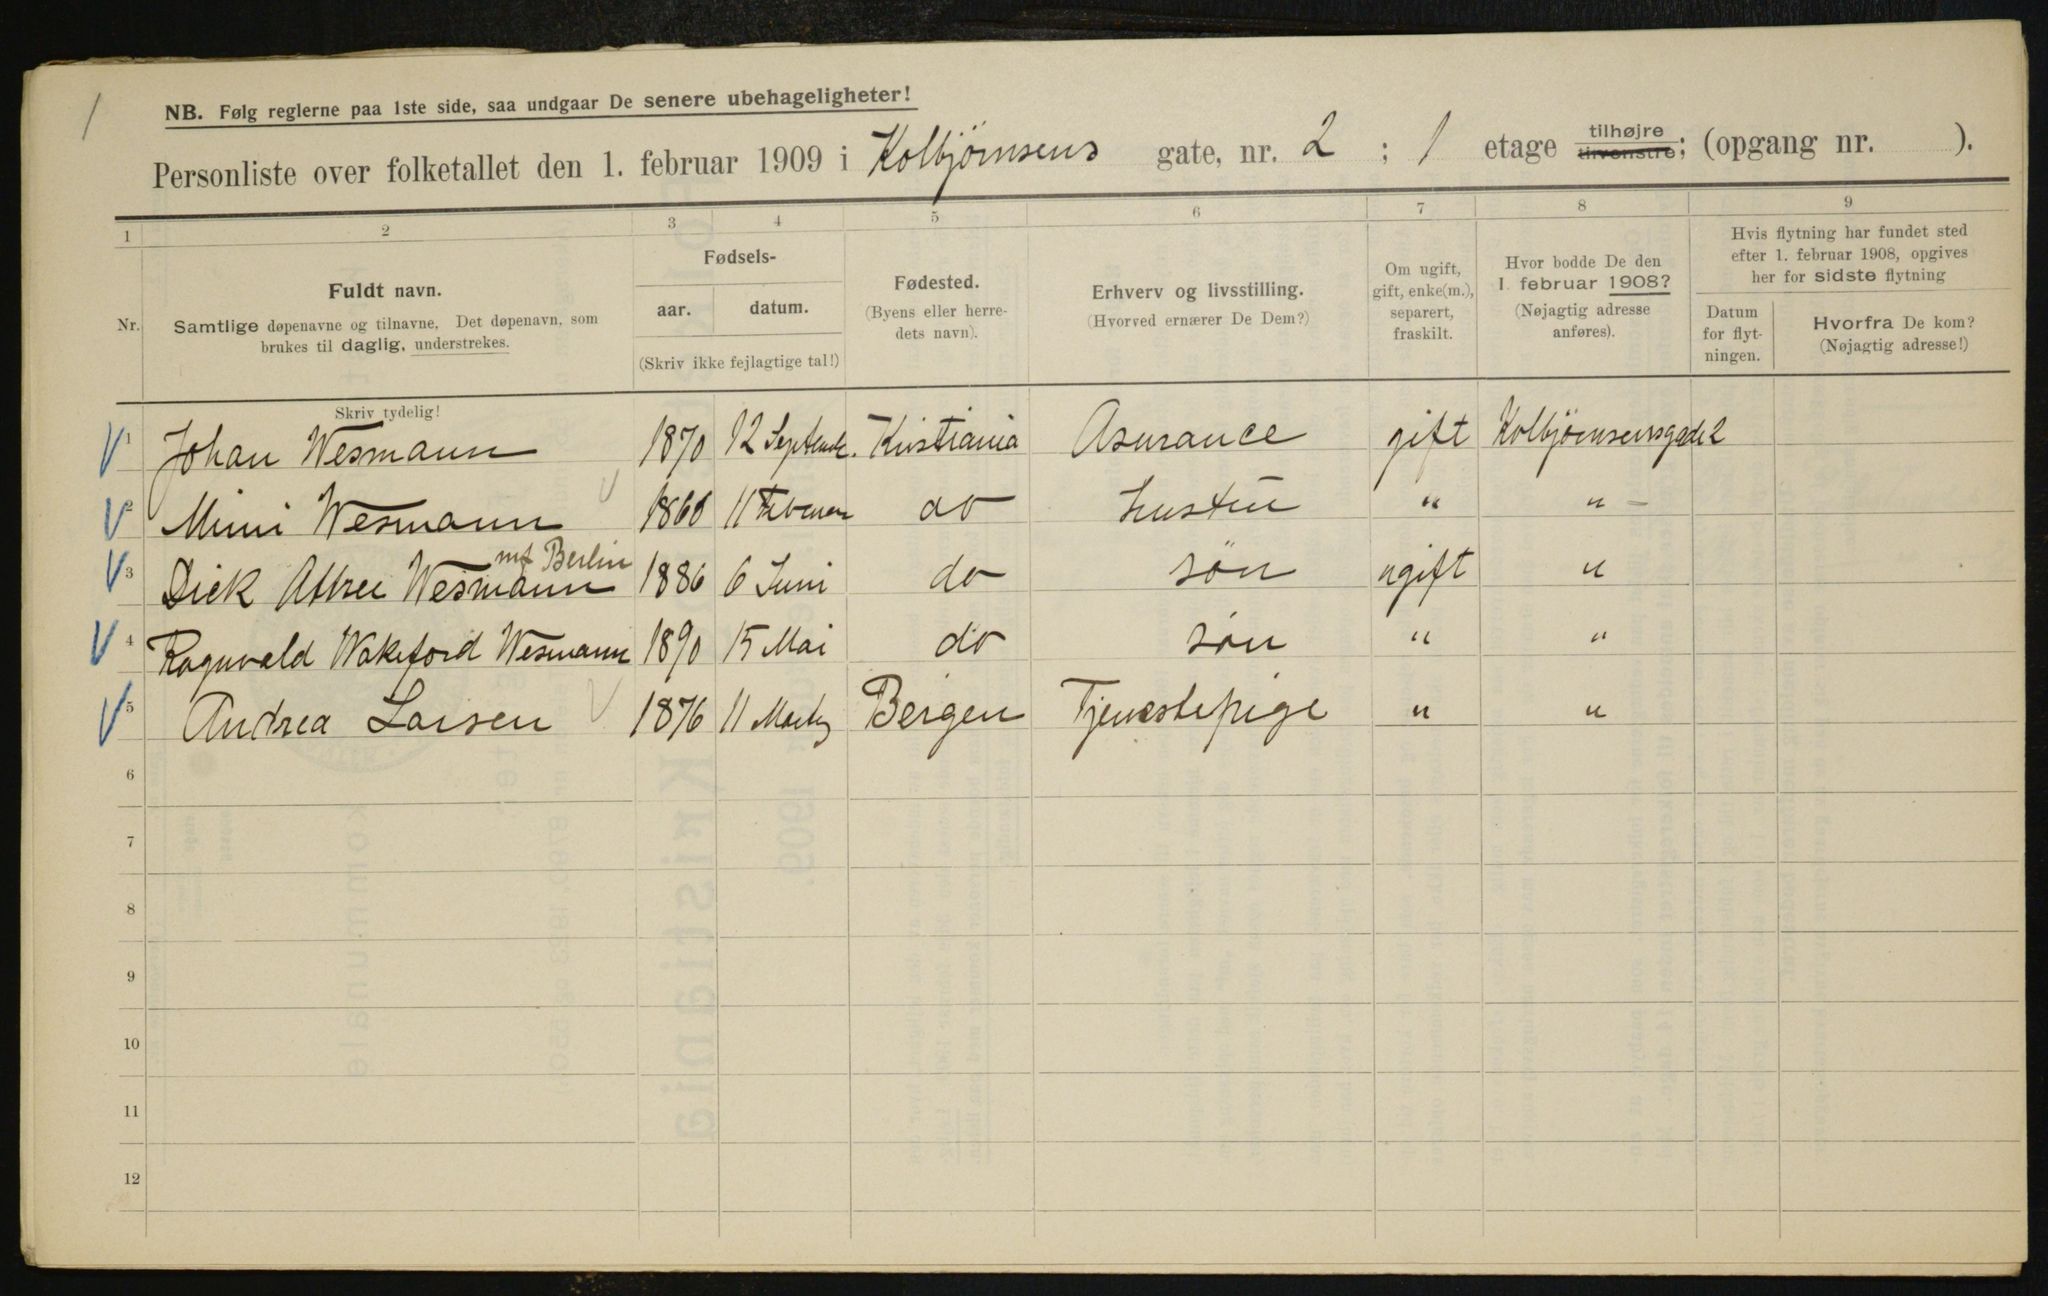 1
NB. Følg reglerne paa 1ste side, saa undgaar De senere ubehageligheter!
Personliste over folketallet den 1. februar 1909 i Kolbjørnsens gate, nr. 2 ; 1 etage tilhøjre tilvenstre; (opgang nr. ).
1 2 3 4 5 6 7 8 9
Nr.
Fuldt navn.
Samtlige døpenavne og tilnavne. Det døpenavn, som
brukes til daglig, understrekes.
Skriv tydelig!
Fødsels-
aar. datum.
(Skriv ikke fejlagtige tal!)
Fødested.
(Byens eller herre-
dets navn).
Erhverv og livsstilling.
(Hvorved ernærer De Dem?)
Om ugift,
gift, enke(m.),
separert,
fraskilt.
Hvor bodde De den
1. februar 1908?
(Nøjagtig adresse
anføres).
Hvis flytning har fundet sted
efter 1. februar 1908, opgives
her for sidste flytning
Datum
for flyt-
ningen.
Hvorfra De kom?
(Nøjagtig adresse!)
1 Johan Wesmann 1870 12 Septembr. Kristiania Asurance gift Kolbjørnsensgade 2
2 Mimi Wesmann 11 Februar do Hustru " " –
mf Berlin
3 Dick Attree Wesmann 1886 6 Juni do søn ugift "
4 Ragnvald Wakeford Wesmann 1890 15 Mai do søn " "
5 Andrea Larsen 1876 11 Marts Bergen Tjenestepige " "
6
7
8
9
10
11
12